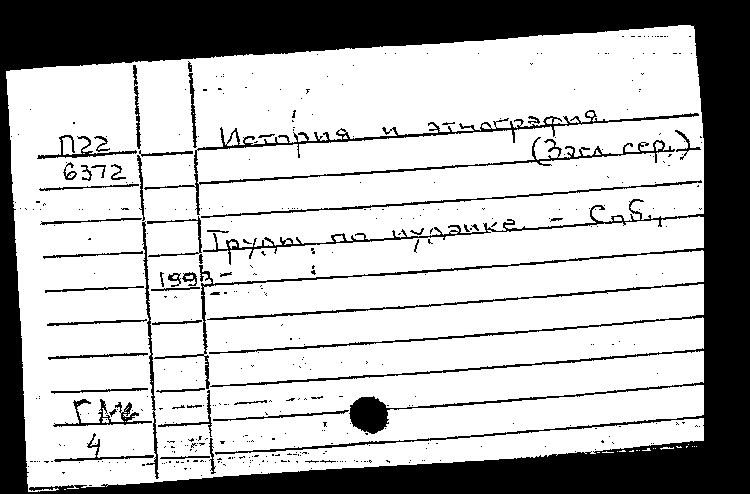 П22
6372
История и этнография.
(Загл. сер.)
Труды по иудаике. - Спб.,
1993-
4